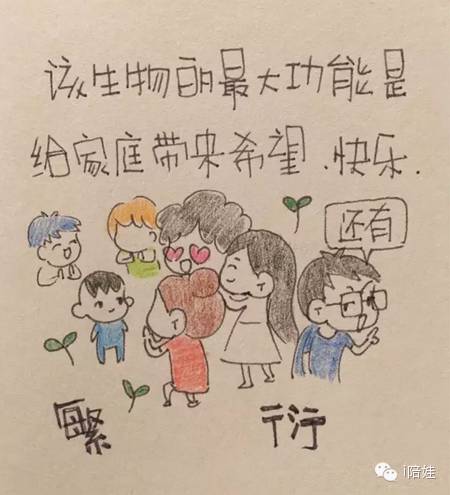 该生物的最大功能是
给家庭带来希望.快乐.
还有
繁 衍
i陪娃